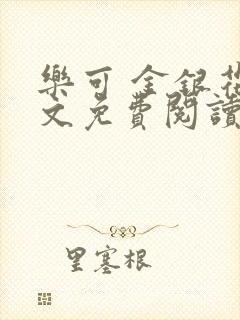 樂可 金銀花
文免費閱讀
里塞根